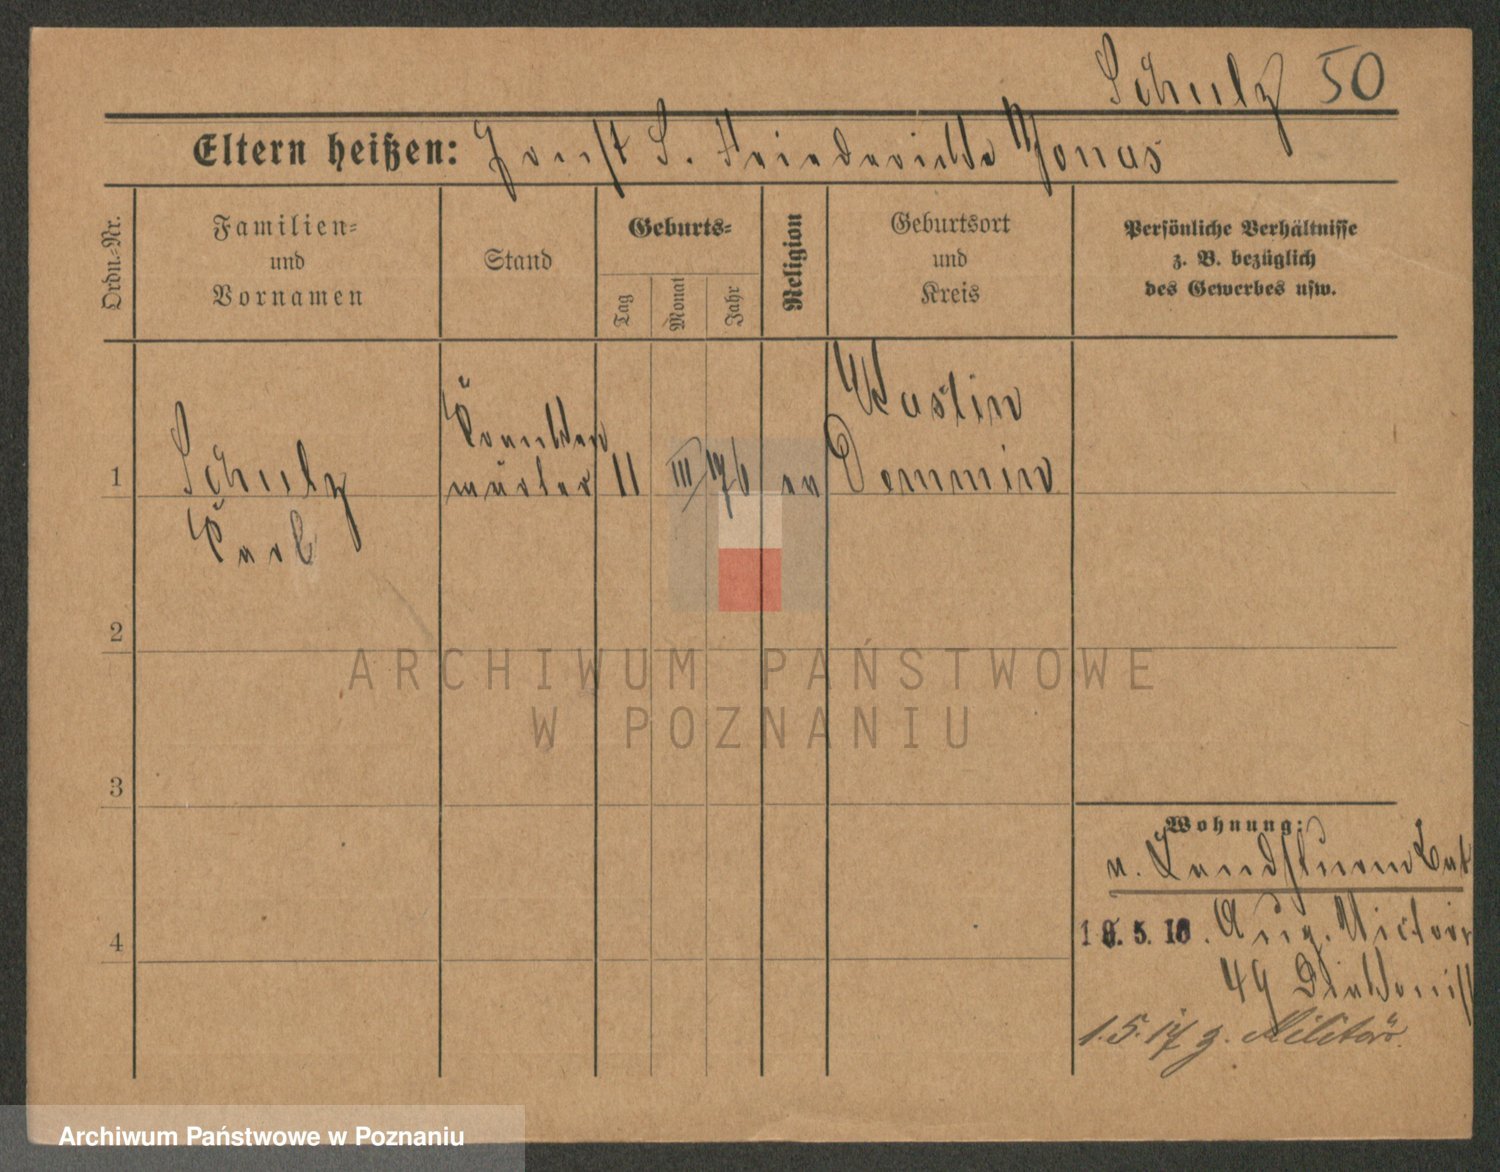 Schulz 50
Eltern heißen: Joust S. Friederike Jonas
Ordn.-Nr.
Familien-
und
Vornamen
Stand
Geburts-
Tag
Monat
Jahr
Religion
Geburtsort
und
Kreis
Persönliche Verhältnisse
z. B. bezüglich
des Gewerbes usw.
1
Schulz
Karl
Kranken
wärter
11
III
76
ev
Wustin
Demmin
2
3
4
Wohnung:
n. Landsturm Bat
5. 16. Aug. Victoir
49 Diakonist
1.5.17 z. Militär.
ARCHIWUM PAŃSTWOWE
W POZNANIU
Archiwum Państwowe w Poznaniu